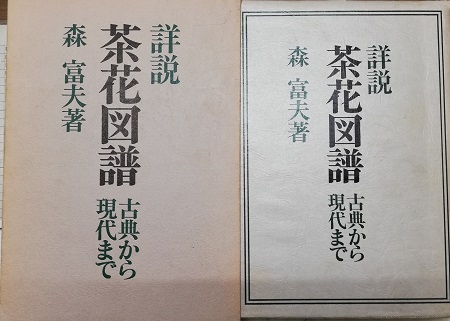 詳説
茶花図譜
古典から
現代まで
森 富夫著
詳説
茶花図譜
古典から
現代まで
森 富夫著